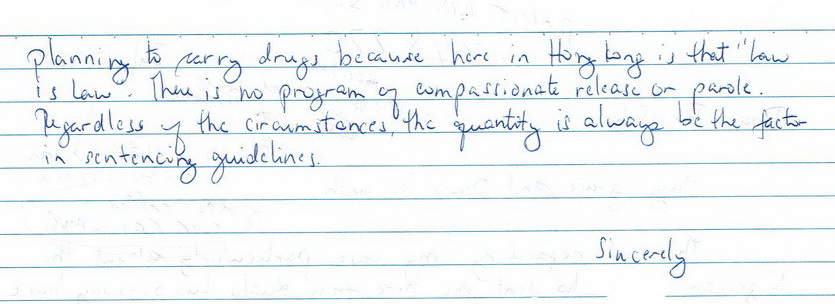 planning to carry drugs because here in Hong Kong is that "Law
is Law". There is no program of compassionate release or parole.
Regardless of the circumstances, the quantity is always be the factor
in sentencing guidelines.
Sincerely